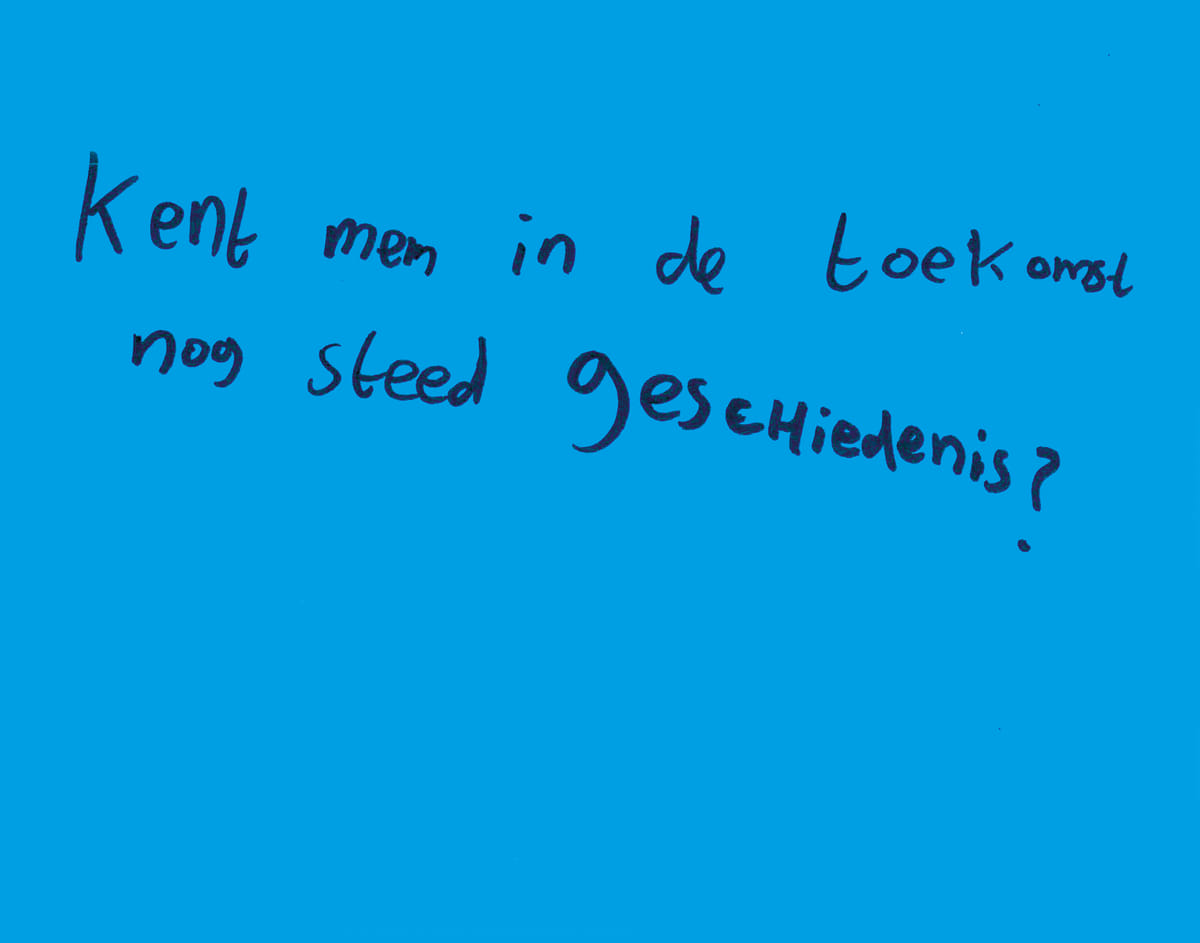 Kent mem in de toekomst
nog steed gescHiedenis?